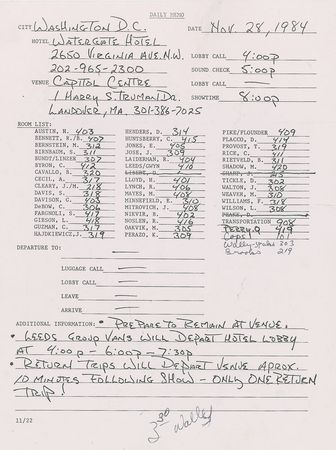 DAILY MEMO
CITY WASHINGTON D.C. DATE NOV. 28, 1984
HOTEL WATERGATE HOTEL
2650 VIRGINIA AVE. N.W. LOBBY CALL 4:00 pm
202-965-2300 SOUND CHECK 5:00 pm
VENUE CAPITOL CENTRE LOBBY CALL
1 HARRY S. TRUMAN DR. SHOWTIME 8:00 pm
LANDOVER, MA. 301-386-7025
ROOM LIST:
AUSTIN, N. 403 HENDERS, D. 314 PIKE/FLOUNDER 409
BENNETT, R./B. 407 HUNTSBERRY, C. 415 PLACCO, D. 414
BERNSTEIN, M. 312 JONES, E. 408 PROVOST, T. 319
BIRNBAUM, S. 311 JOSE, J. 309 RICE, C.
BUNDT/LINZER 307 LAIDERMAN, R. 404 RIETVELD, B. 311
BYRON, C. 412 LEEDS/GWYN 410 SHADOW, M. 420
CAVALLO, B. 320 SHARP, J. 215
CECIL, A. 317 LLOYD, N. 310 TICKLE, D. 302
CLEARY, J./M. 218 LYNCH, R. 406 WALTON, J. 308
DAVIS, S. 318 HAYES, M. 405 WEAVER, M. 318
DAVISON, G. 403 MINKEFIELD, E. 310 WILLIAMS, E. 318
DEBOW, S. 306 MITROVICH, J. 408 WILSON, L. 308
FARGNOLI, S. 417 NIKVIR, B. 402
GIESON, L. 418 NOSLEN, R. 416 TRANSPORTATION 908
GUZMAN, C. 317 OAKVIK, M. 305 PERRY, Q. 419
HAJDKIEWICZ, J. 319 PERAZO, K. 309 CODY 101
Wally-spoke 303
Brooks 219
DEPARTURE TO:
LUGGAGE CALL
LOBBY CALL
LEAVE
ARRIVE
ADDITIONAL INFORMATION: • PREPARE TO REMAIN AT VENUE.
• LEEDS GROUP VANS WILL DEPART HOTEL LOBBY
AT 4:00 pm - 6:00 pm - 7:30 pm
• RETURN TRIPS WILL DEPART VENUE APROX.
10 MINUTES FOLLOWING SHOW - ONLY ONE RETURN
TRIP!
11/22
330 Wally